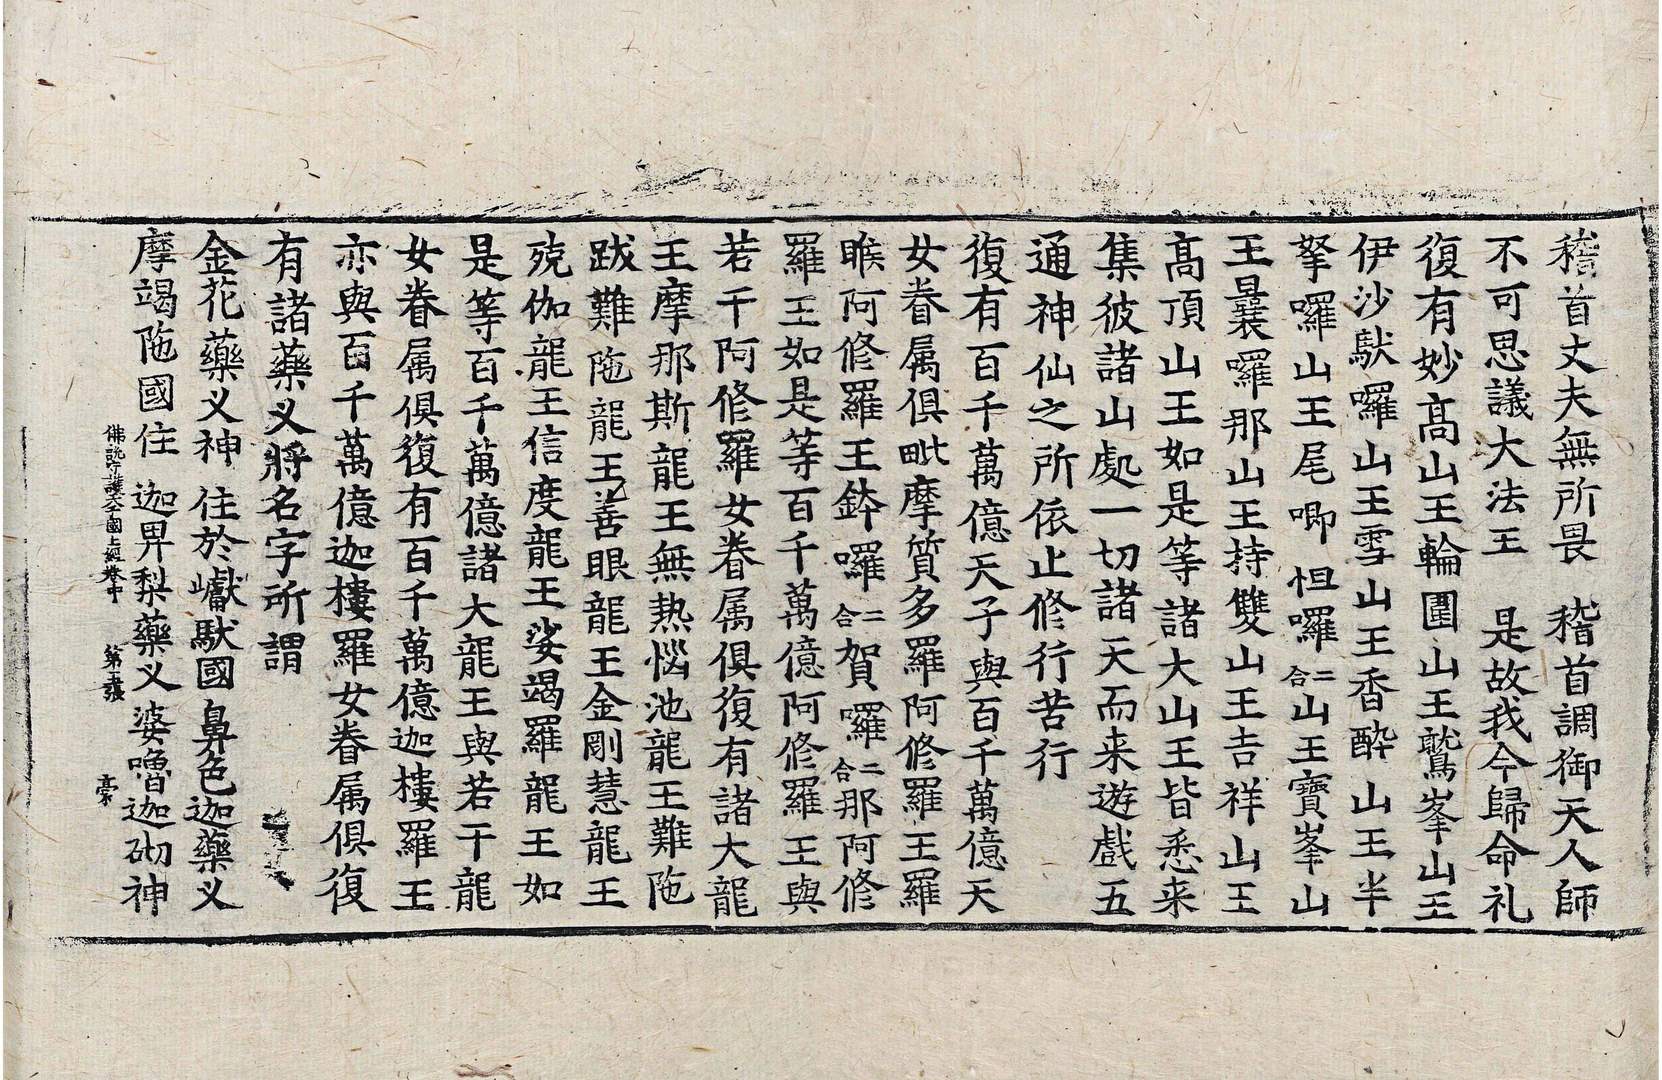 稽首丈夫無所畏　稽首調御天人師
不可思議大法王　是故我今歸命礼
復有妙髙山王輪圍山王鷲峯山王
伊沙馱囉山王雪山王香醉山王半
拏囉山王尾唧怛囉二合山王寶峯山
王曩囉那山王持雙山王吉祥山王
髙頂山王如是等諸大山王皆悉来
集彼諸山處一切諸天而来遊戲五
通神仙之所依止修行苦行
復有百千萬億天子與百千萬億天
女眷属俱毗摩質多羅阿修羅王羅
睺阿修羅王鉢囉二合賀囉二合那阿修
羅王如是等百千萬億阿修羅王與
若干阿修羅女眷属俱復有諸大龍
王摩那斯龍王無熱惱池龍王難陁
跋難陁龍王善眼龍王金剛慧龍王
殑伽龍王信度龍王娑竭羅龍王如
是等百千萬億諸大龍王與若干龍
女眷属俱復有百千萬億迦樓羅王
亦與百千萬億迦樓羅女眷属俱復
有諸藥义將名字所謂
金花藥义神　住於巘馱國鼻色迦藥义
摩竭陁國住　迦毘梨藥义婆嚕迦砌神
佛說守護大千國土經卷中　第五張　亮